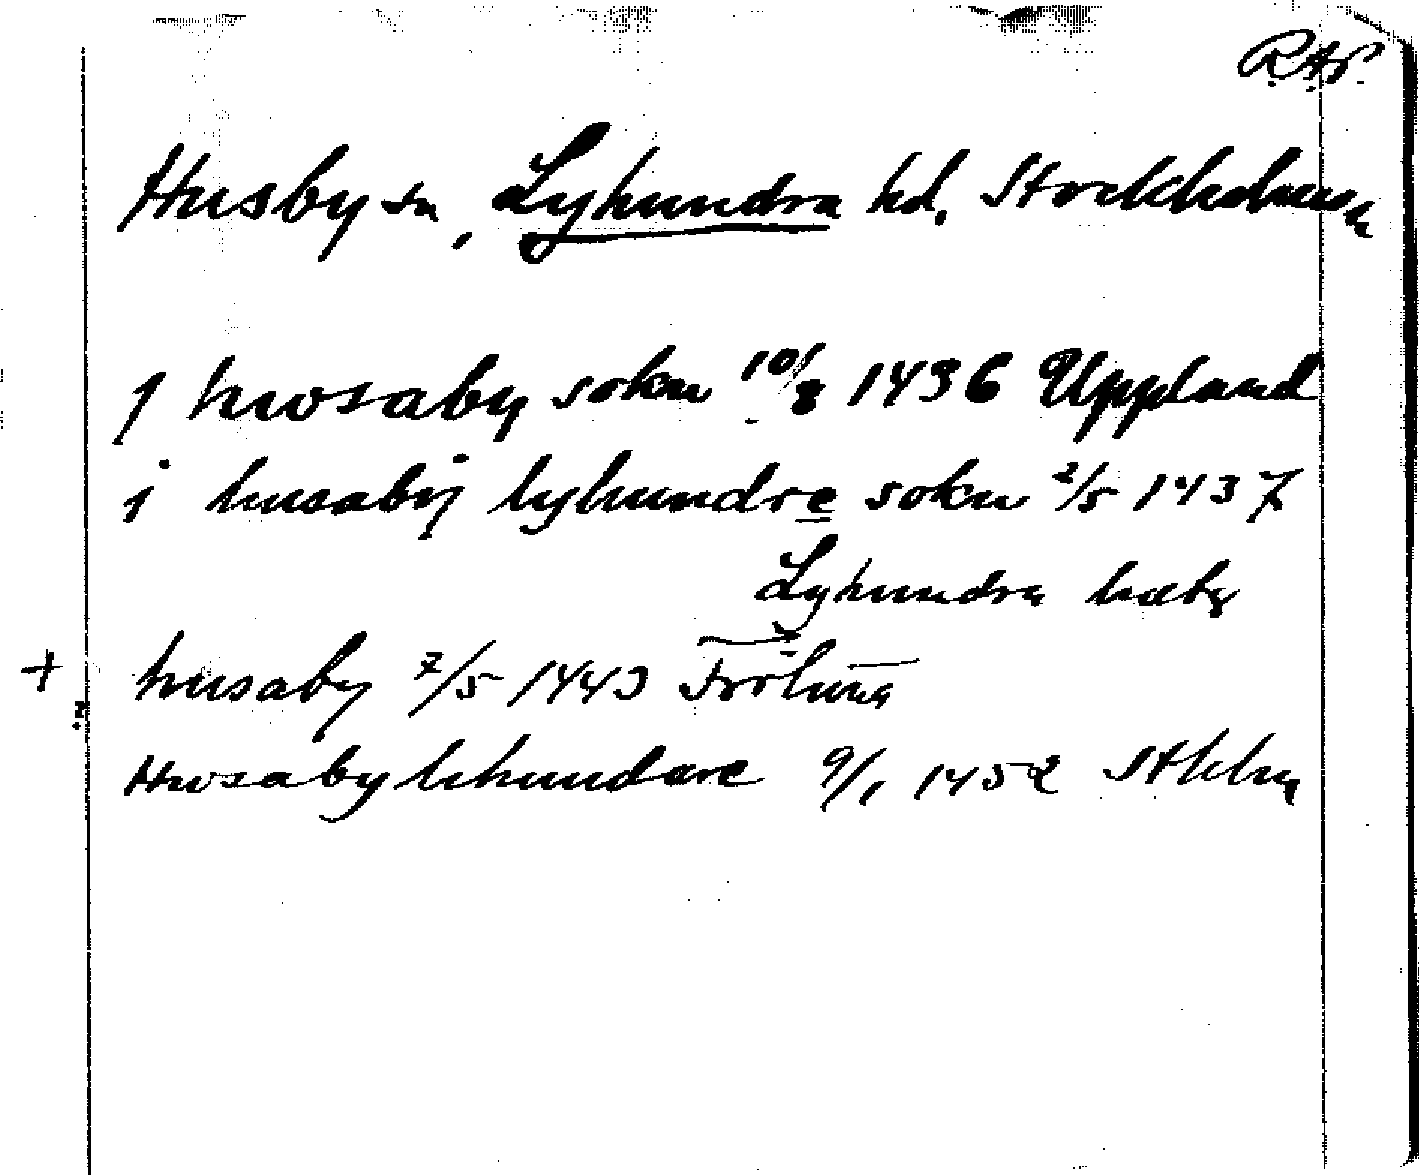 RAP.
Husby sn, Lyhundra hd, Stockholms
J hwsaby sokn 10/8 1436 Uppland
i husabij lyhundre sokn 2/5 1437
Lyhundra
+ husaby 7/5 1443 Frötuna
Hwsaby lihundare 9/1 1452 Sthlm